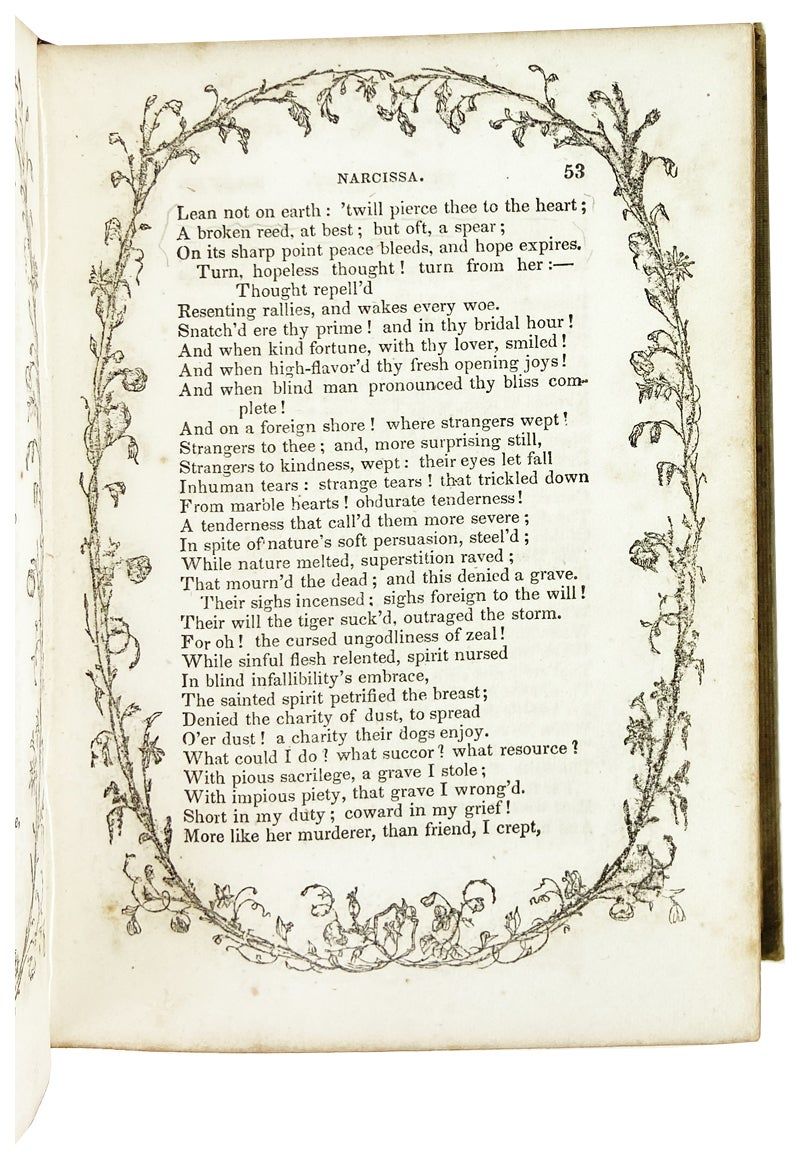 NARCISSA. 53
Lean not on earth : 'twill pierce thee to the heart ;
A broken reed, at best ; but oft, a spear ;
On its sharp point peace bleeds, and hope expires.
Turn, hopeless thought ! turn from her :—
Thought repell'd
Resenting rallies, and wakes every woe.
Snatch'd ere thy prime ! and in thy bridal hour !
And when kind fortune, with thy lover, smiled !
And when high-flavor'd thy fresh opening joys !
And when blind man pronounced thy bliss com-
plete !
And on a foreign shore ! where strangers wept !
Strangers to thee ; and, more surprising still,
Strangers to kindness, wept : their eyes let fall
Inhuman tears : strange tears ! that trickled down
From marble hearts ! obdurate tenderness !
A tenderness that call'd them more severe ;
In spite of nature's soft persuasion, steel'd ;
While nature melted, superstition raved ;
That mourn'd the dead ; and this denied a grave.
Their sighs incensed ; sighs foreign to the will !
Their will the tiger suck'd, outraged the storm.
For oh ! the cursed ungodliness of zeal !
While sinful flesh relented, spirit nursed
In blind infallibility's embrace,
The sainted spirit petrified the breast ;
Denied the charity of dust, to spread
O'er dust ! a charity their dogs enjoy.
What could I do ? what succor ? what resource ?
With pious sacrilege, a grave I stole ;
With impious piety, that grave I wrong'd.
Short in my duty ; coward in my grief !
More like her murderer, than friend, I crept,